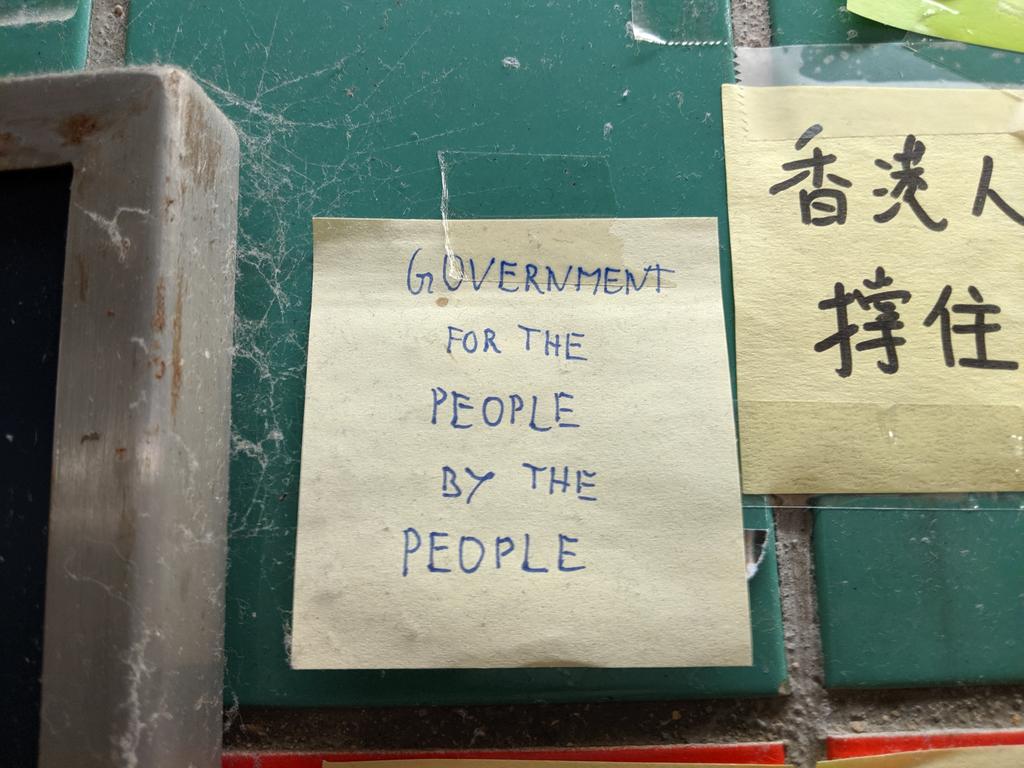 GOVERNMENT
FOR THE
PEOPLE
BY THE
PEOPLE
香港人
撐住